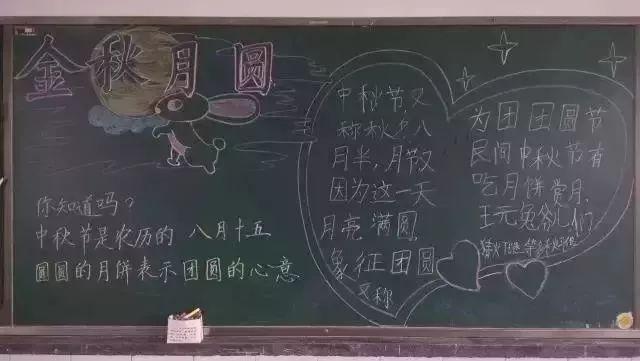 金秋月圆
你知道吗？
中秋节是农历的 八月十五
圆圆的月饼表示团圆的心意
中秋节,又
称秋夕八
月半,月节又
因为这一天
月亮满圆,
象征团圆
又称
为团团圆节
民间中秋节有
吃月饼赏月,
玩兔爷儿们